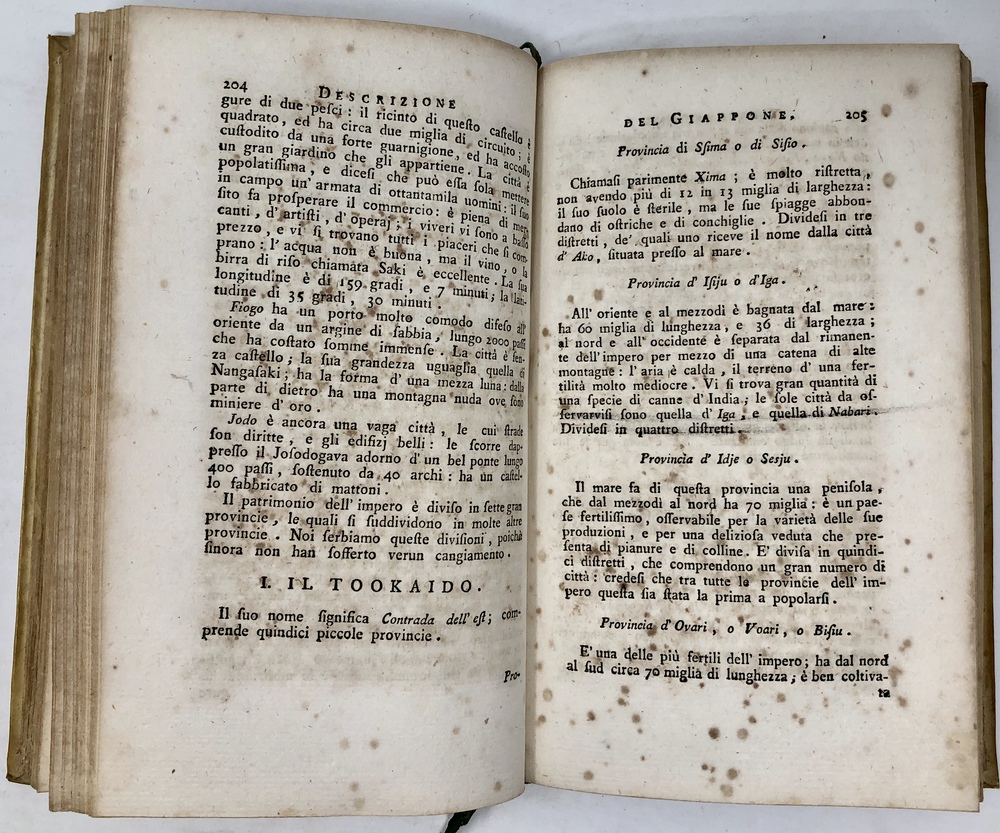 204 DESCRIZIONE
gure di due peſci : il ricinto di queſto caſtello è
quadrato, ed ha circa due miglia di circuito ; è
cuſtodito da una forte guarnigione, ed ha accoſto
un gran giardino che gli appartiene. La città è
popolatiſſima, e diceſi che può eſſa ſola mettere
in campo un' armata di ottantamila uomini : il ſuo
ſito fa proſperare il commercio : è piena di mer-
canti, d' artiſti, d' operaj ; i viveri vi ſono a baſſo
prezzo, e vi ſi trovano tutti i piaceri che ſi com-
prano : l' acqua non è buona, ma il vino, o la
birra di riſo chiamata Saki è eccellente. La ſua
longitudine è di 159 gradi, e 7 minuti ; la lati-
tudine di 35 gradi, 30 minuti.
Fiogo ha un porto molto comodo difeſo all'
oriente da un argine di ſabbia, lungo 2000 paſſi
che ha coſtato ſomme immenſe. La città è ſen-
za caſtello ; la ſua grandezza uguaglia quella di
Nangaſaki ; ha la forma d' una mezza luna : dalla
parte di dietro ha una montagna nuda ove ſono
miniere d' oro.
Jodo è ancora una vaga città, le cui ſtrade
ſon diritte, e gli edifizj belli : le ſcorre dap-
preſſo il Joſodogava adorno d' un bel ponte lungo
400 paſſi, ſoſtenuto da 40 archi : ha un caſtel-
lo fabbricato di mattoni.
Il patrimonio dell' impero è diviſo in ſette gran
provincie, le quali ſi ſuddividono in molte altre
provincie. Noi ſerbiamo queſte diviſioni, poichè
ſinora non han ſofferto verun cangiamento.
I. IL TOOKAIDO.
Il ſuo nome ſignifica Contrada dell' eſt ; com-
prende quindici piccole provincie.
Pro-
DEL GIAPPONE. 205
Provincia di Sſima o di Siſio.
Chiamaſi parimente Xima ; è molto riſtretta,
non avendo più di 12 in 13 miglia di larghezza :
il ſuo ſuolo è ſterile, ma le ſue ſpiagge abbon-
dano di oſtriche e di conchiglie. Divideſi in tre
diſtretti, de' quali uno riceve il nome dalla città
d' Ako, ſituata preſſo al mare.
Provincia d' Iſiju o d'Iga.
All' oriente e al mezzodì è bagnata dal mare :
ha 60 miglia di lunghezza, e 36 di larghezza ;
al nord e all' occidente è separata dal rimanen-
te dell' impero per mezzo di una catena di alte
montagne : l' aria è calda, il terreno d' una fer-
tilità molto mediocre. Vi ſi trova gran quantità di
una ſpecie di canne d' India ; le ſole città da oſ-
ſervarviſi ſono quella d' Iga, e quella di Nabari.
Divideſi in quattro diſtretti.
Provincia d' Idje o Sesju.
Il mare fa di queſta provincia una peniſola,
che dal mezzodì al nord ha 70 miglia : è un pae-
ſe fertiliſſimo, oſſervabile per la varietà delle ſue
produzioni, e per una delizioſa veduta che pre-
ſenta di pianure e di colline. E' diviſa in quindi-
ci diſtretti, che comprendono un gran numero di
città : credeſi che tra tutte le provincie dell' im-
pero queſta ſia ſtata la prima a popolarſi.
Provincia d' Ovari, o Voari, o Biſiu.
E' una delle più fertili dell' impero ; ha dal nord
al ſud circa 70 miglia di lunghezza ; è ben coltiva-
ta